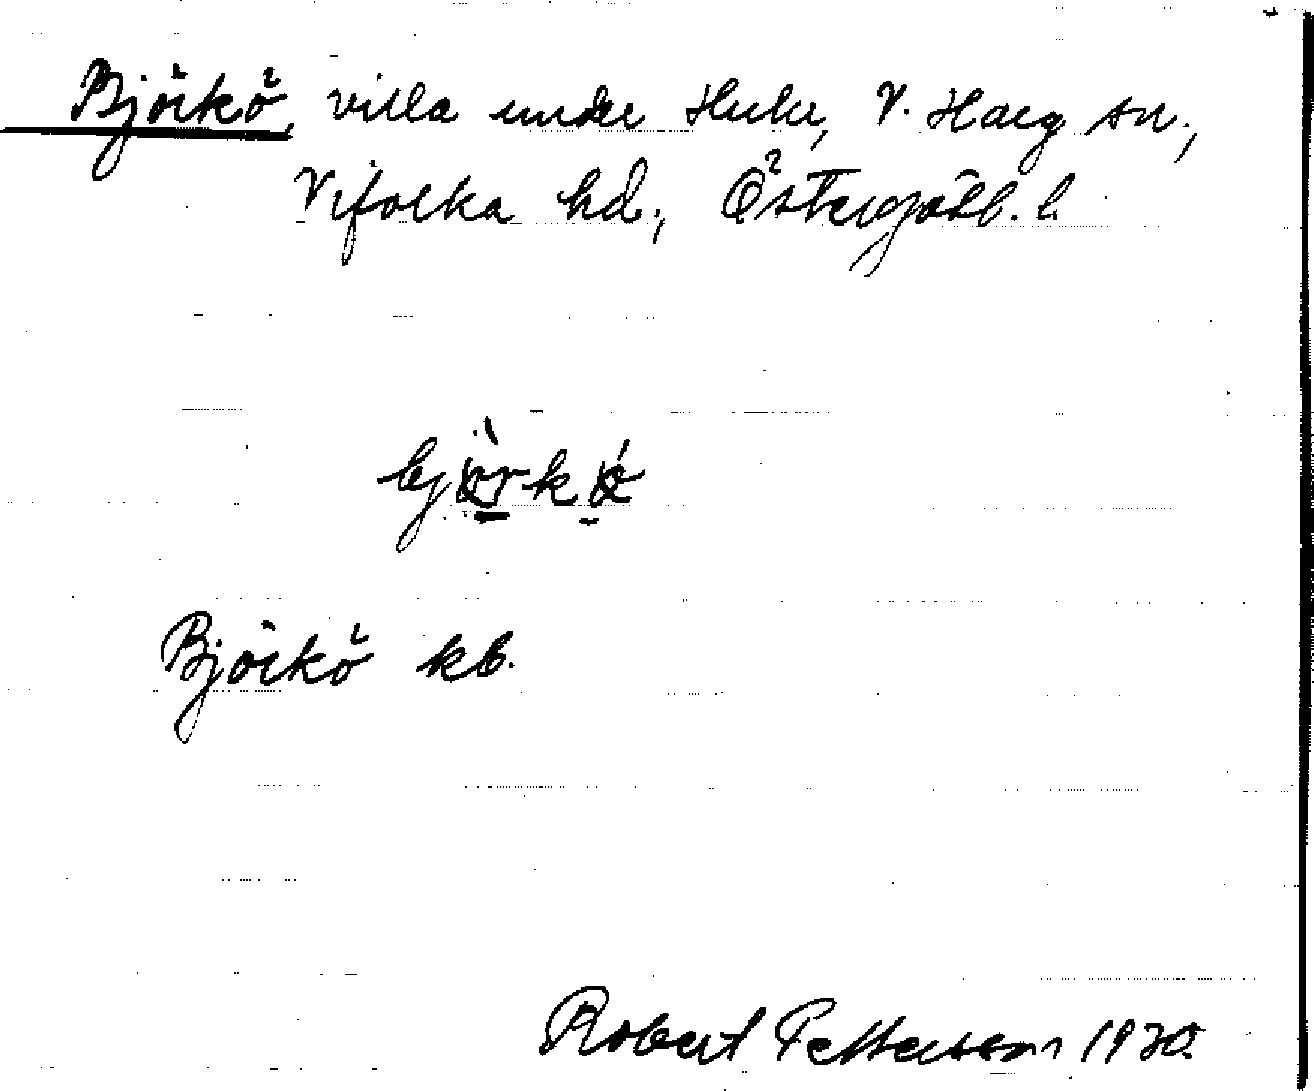 Björkö, villa under Hulu, V. Harg sn.,
Vifolka hd., Östergötl. l.
björkö
Björkö kb.
Robert Pettersson 1930.